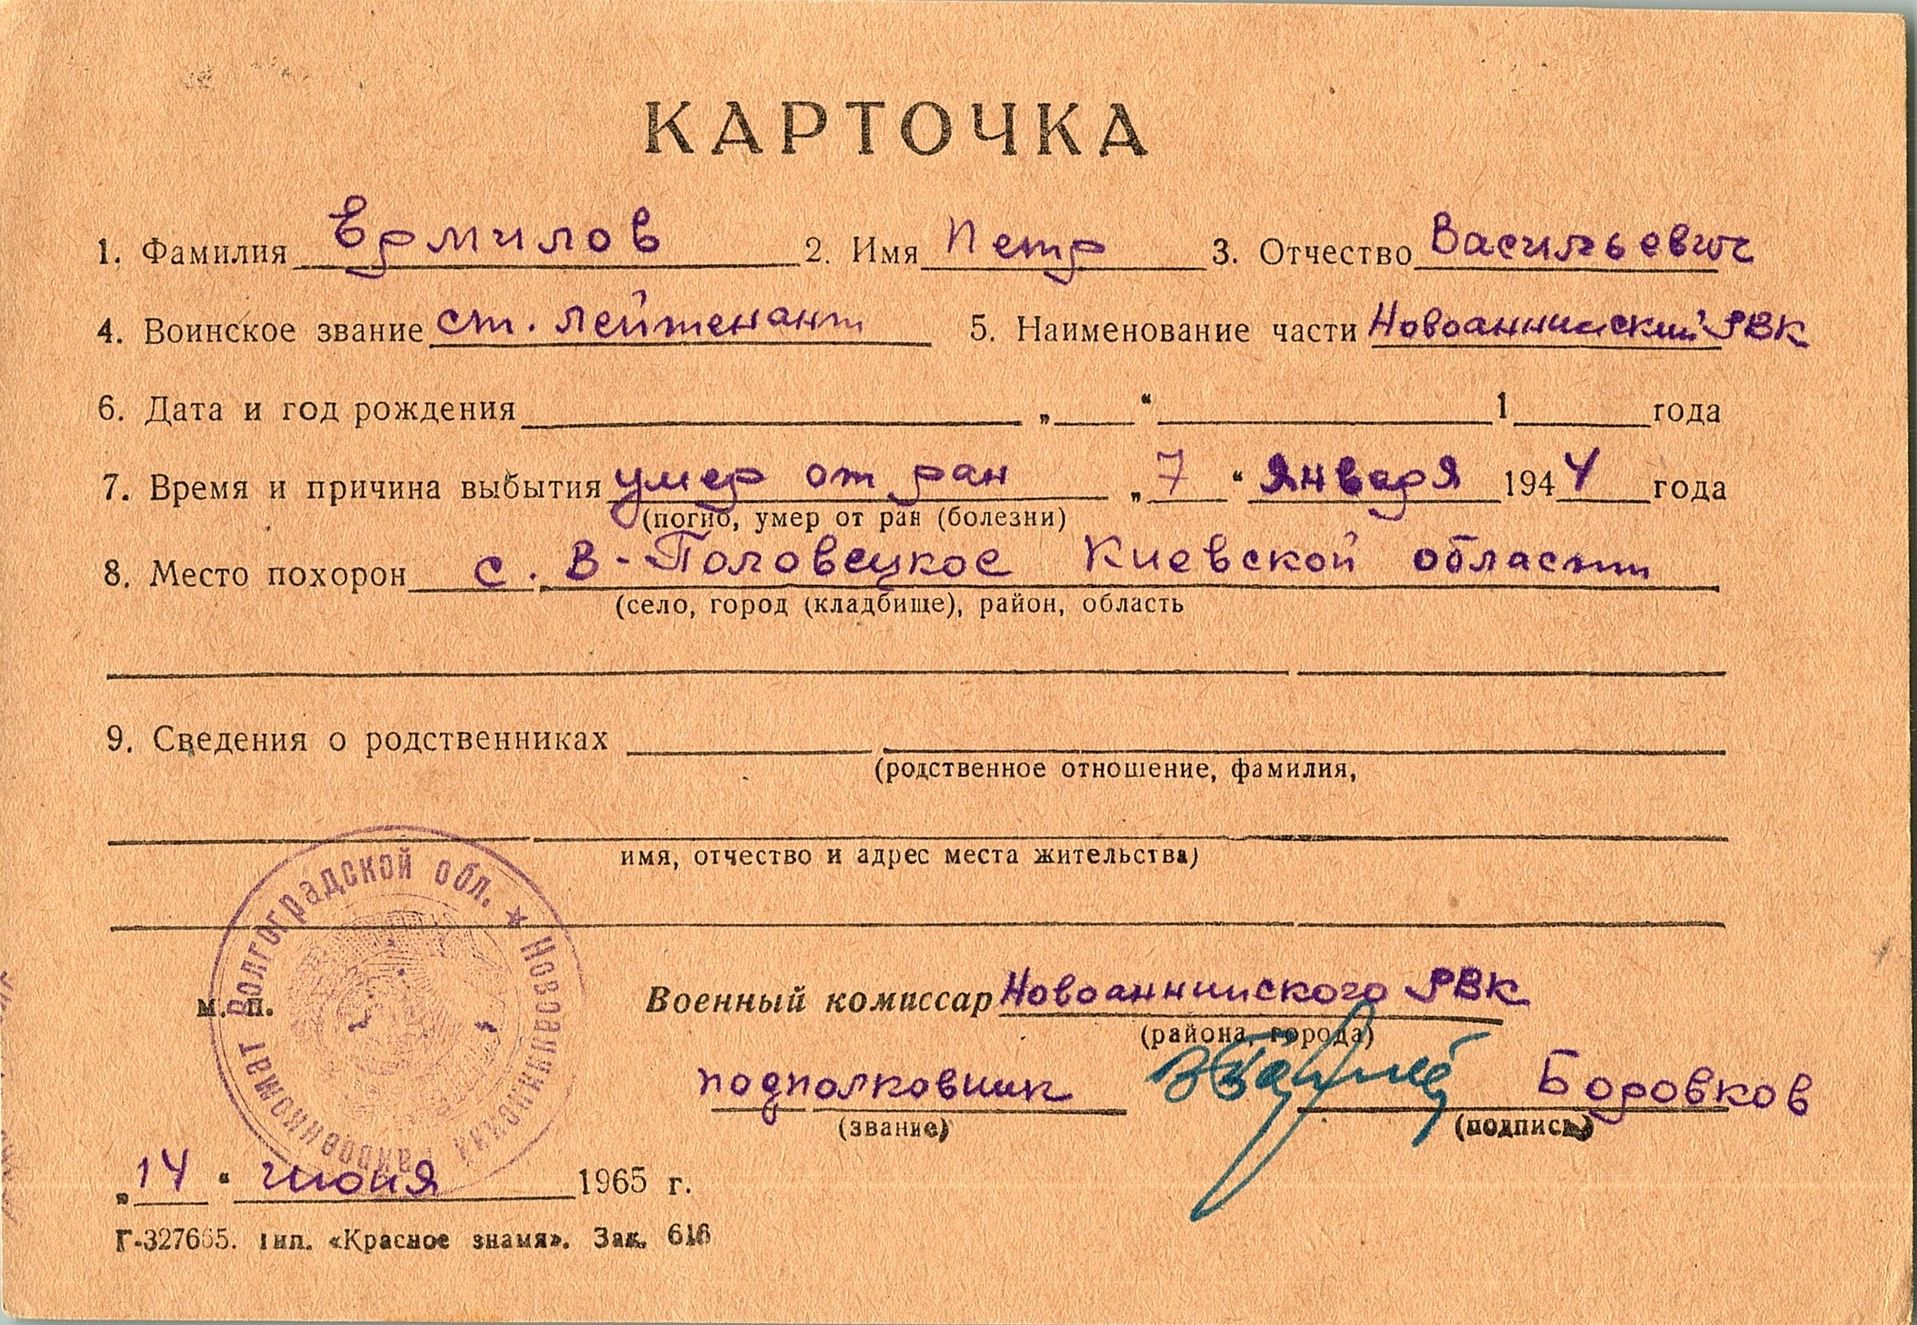 КАРТОЧКА
1. Фамилия Ермилов 2. Имя Петр 3. Отчество Васильевич
4. Воинское звание ст. лейтенант 5. Наименование части Новоаннинский РВК
6. Дата и год рождения „ “ 1 года
7. Время и причина выбытия умер от ран „7“ января 1944 года
(погиб, умер от ран (болезни)
8. Место похорон с. В-Половецкое Киевской области
(село, город (кладбище), район, область
9. Сведения о родственниках
(родственное отношение, фамилия,
имя, отчество и адрес места жительства)
Волгоградской обл. ★ Новоаннинский райвоенкомат
м. п.
Военный комиссар Новоаннинского РВК
(района, города)
подполковник Боровков
(звание) (подпись)
„14“ июня 1965 г.
Г-327665. Тип. «Красное знамя». Зак. 616